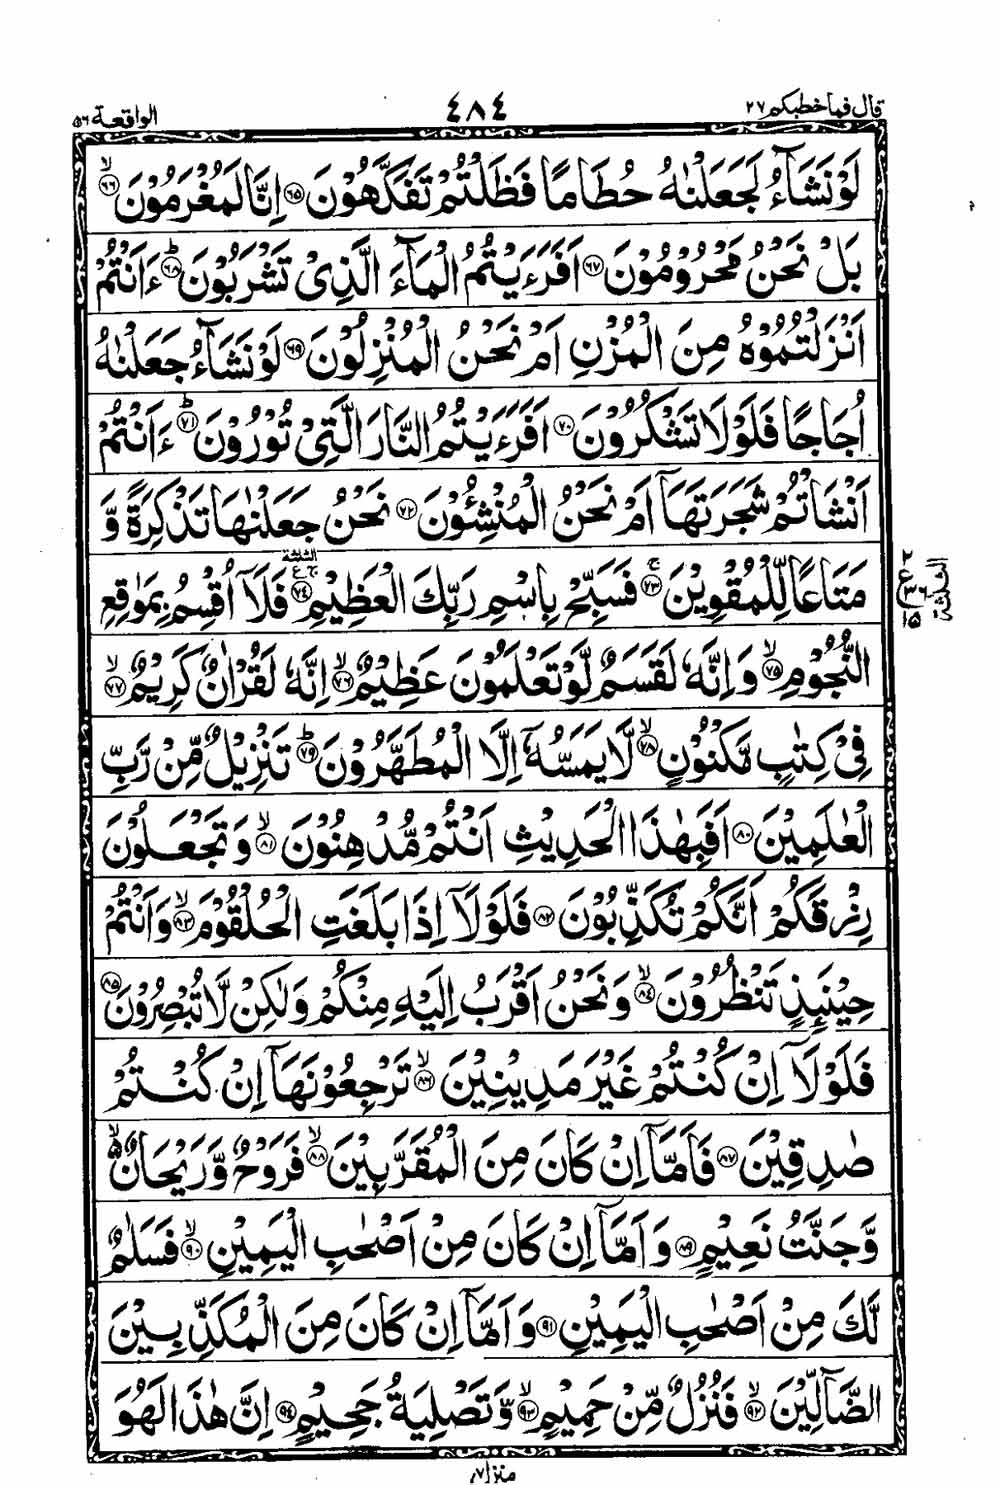 قال فما خطبكم ٢٧ ٤٨٤ الواقعة ٥٦
لَوْ نَشَآءُ لَجَعَلْنٰهُ حُطَامًا فَظَلْتُمْ تَفَكَّهُوْنَ ﴿٦٥﴾ اِنَّا لَمُغْرَمُوْنَ ﴿٦٦﴾ۙ
بَلْ نَحْنُ مَحْرُوْمُوْنَ ﴿٦٧﴾ اَفَرَءَيْتُمُ الْمَآءَ الَّذِىْ تَشْرَبُوْنَ ﴿٦٨﴾ؕ ءَاَنْتُمْ
اَنْزَلْتُمُوْهُ مِنَ الْمُزْنِ اَمْ نَحْنُ الْمُنْزِلُوْنَ ﴿٦٩﴾ لَوْ نَشَآءُ جَعَلْنٰهُ
اُجَاجًا فَلَوْلَا تَشْكُرُوْنَ ﴿٧٠﴾ اَفَرَءَيْتُمُ النَّارَ الَّتِىْ تُوْرُوْنَ ﴿٧١﴾ؕ ءَاَنْتُمْ
اَنْشَاْتُمْ شَجَرَتَهَآ اَمْ نَحْنُ الْمُنْشِـُٔوْنَ ﴿٧٢﴾ نَحْنُ جَعَلْنٰهَا تَذْكِرَةً وَّ
مَتَاعًا لِّلْمُقْوِيْنَ ﴿٧٣﴾ۚ فَسَبِّحْ بِاسْمِ رَبِّكَ الْعَظِيْمِ ﴿٧٤﴾ فَلَآ اُقْسِمُ بِمَوٰقِعِ
النُّجُوْمِ ﴿٧٥﴾ۙ وَاِنَّهٗ لَقَسَمٌ لَّوْ تَعْلَمُوْنَ عَظِيْمٌ ﴿٧٦﴾ۙ اِنَّهٗ لَقُرْاٰنٌ كَرِيْمٌ ﴿٧٧﴾ۙ
فِىْ كِتٰبٍ مَّكْنُوْنٍ ﴿٧٨﴾ۙ لَّا يَمَسُّهٗۤ اِلَّا الْمُطَهَّرُوْنَ ﴿٧٩﴾ؕ تَنْزِيْلٌ مِّنْ رَّبِّ
الْعٰلَمِيْنَ ﴿٨٠﴾ اَفَبِهٰذَا الْحَدِيْثِ اَنْتُمْ مُّدْهِنُوْنَ ﴿٨١﴾ۙ وَتَجْعَلُوْنَ
رِزْقَكُمْ اَنَّكُمْ تُكَذِّبُوْنَ ﴿٨٢﴾ فَلَوْلَآ اِذَا بَلَغَتِ الْحُلْقُوْمَ ﴿٨٣﴾ۙ وَاَنْتُمْ
حِيْنَئِذٍ تَنْظُرُوْنَ ﴿٨٤﴾ۙ وَنَحْنُ اَقْرَبُ اِلَيْهِ مِنْكُمْ وَلٰكِنْ لَّا تُبْصِرُوْنَ ﴿٨٥﴾
فَلَوْلَآ اِنْ كُنْتُمْ غَيْرَ مَدِيْنِيْنَ ﴿٨٦﴾ۙ تَرْجِعُوْنَهَآ اِنْ كُنْتُمْ
صٰدِقِيْنَ ﴿٨٧﴾ فَاَمَّآ اِنْ كَانَ مِنَ الْمُقَرَّبِيْنَ ﴿٨٨﴾ۙ فَرَوْحٌ وَّرَيْحَانٌ ۙ
وَّجَنَّتُ نَعِيْمٍ ﴿٨٩﴾ وَاَمَّآ اِنْ كَانَ مِنْ اَصْحٰبِ الْيَمِيْنِ ﴿٩٠﴾ۙ فَسَلٰمٌ
لَّكَ مِنْ اَصْحٰبِ الْيَمِيْنِ ﴿٩١﴾ وَاَمَّآ اِنْ كَانَ مِنَ الْمُكَذِّبِيْنَ
الضَّآلِّيْنَ ﴿٩٢﴾ۙ فَنُزُلٌ مِّنْ حَمِيْمٍ ﴿٩٣﴾ۙ وَّتَصْلِيَةُ جَحِيْمٍ ﴿٩٤﴾ اِنَّ هٰذَا لَهُوَ
منزل ٧